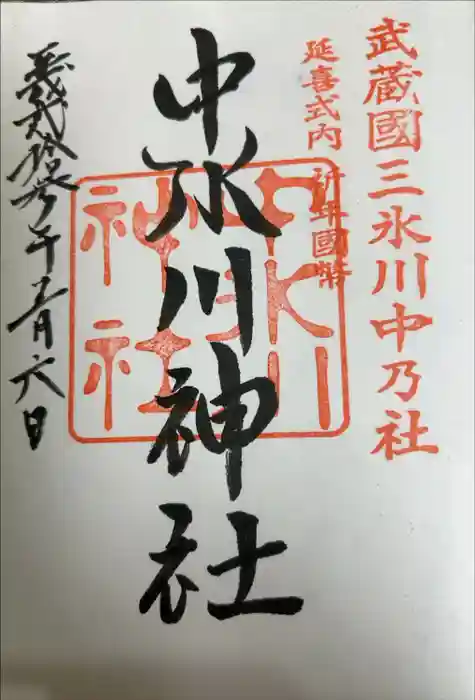 武蔵國三氷川中乃社
延喜式内 祈年國幣
中氷川神社
中氷川神社
平成弐拾参年五月六日